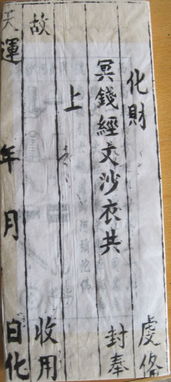 化財 虔俻
封奉
冥錢經文沙衣共
上
故 收用
天運 年 月 日化